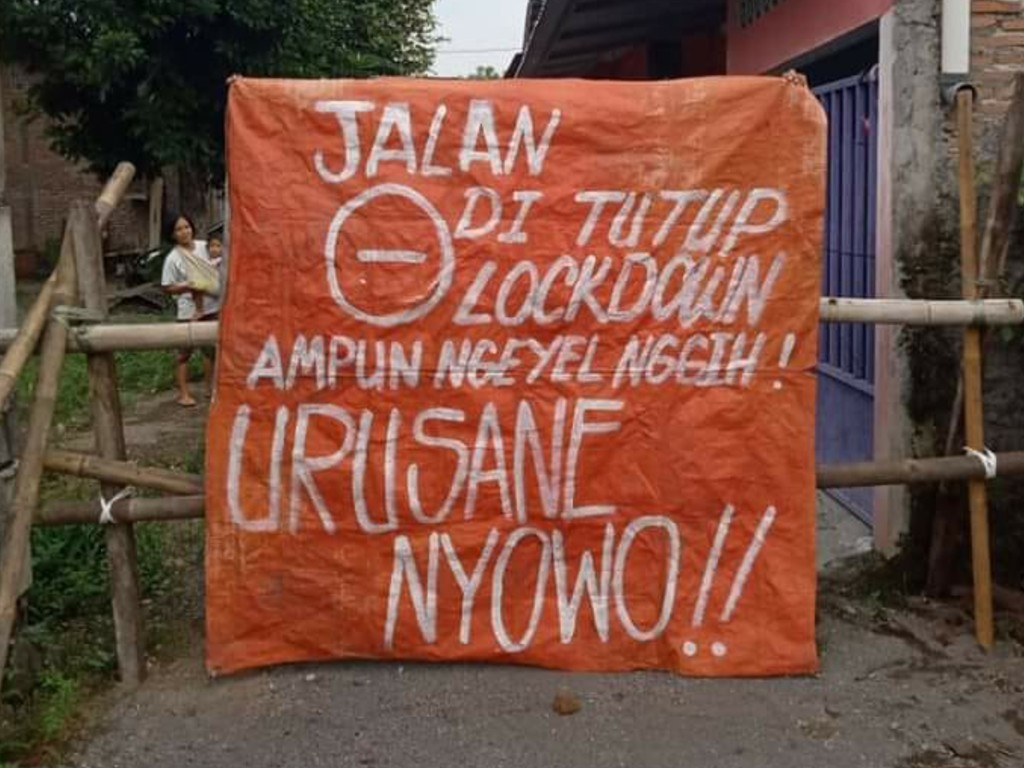 JALAN
DI TUTUP
LOCKDOWN
AMPUN NGEYEL NGGIH!
URUSANE
NYOWO!!